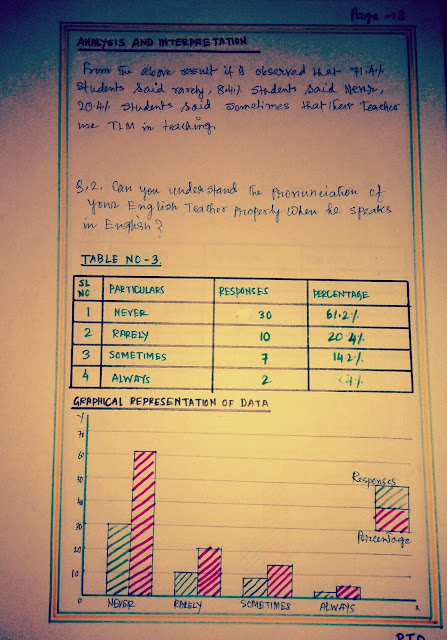 Page - 18
ANALYSIS AND INTERPRETATION
From the above result it is observed that 71.4%
students said rarely, 8.4% students said Never,
20.4% students said sometimes that their Teacher
use TLM in teaching.
Q.2. Can you understand the Pronunciation of
your English Teacher properly when he speaks
in English?
TABLE NO-3.
SL NO PARTICULARS RESPONSES PERCENTAGE
1 NEVER 30 61.2%
2 RARELY 10 20.4%
3 SOMETIMES 7 14.2%
4 ALWAYS 2
GRAPHICAL REPRESENTATION OF DATA
Y
Responses
Percentage
NEVER RARELY SOMETIMES ALWAYS X
PTO